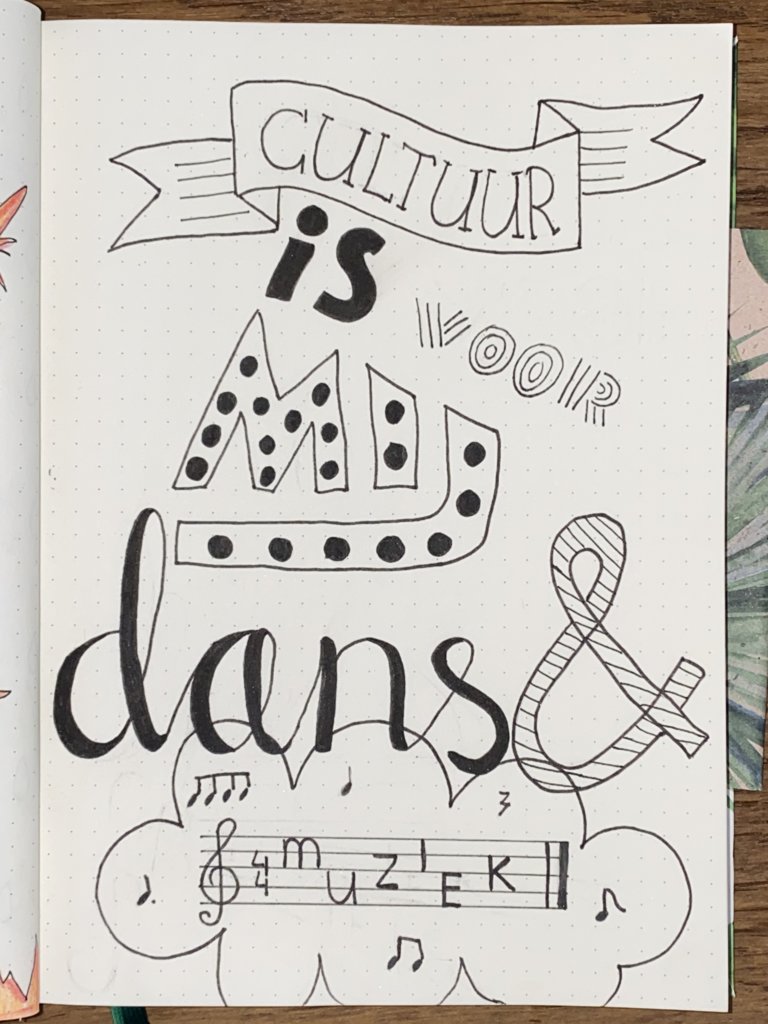 CULTUUR
is
VOOR
MIJ
dans &
4 4 mUZIEK